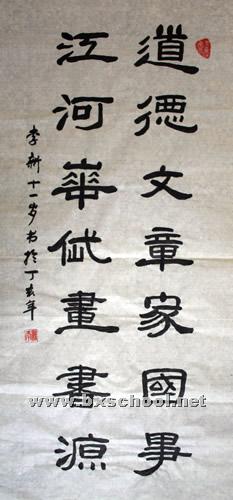 道德文章家國事
江河華岱畫書源
李新十一岁书於丁亥年
www.bxschool.net